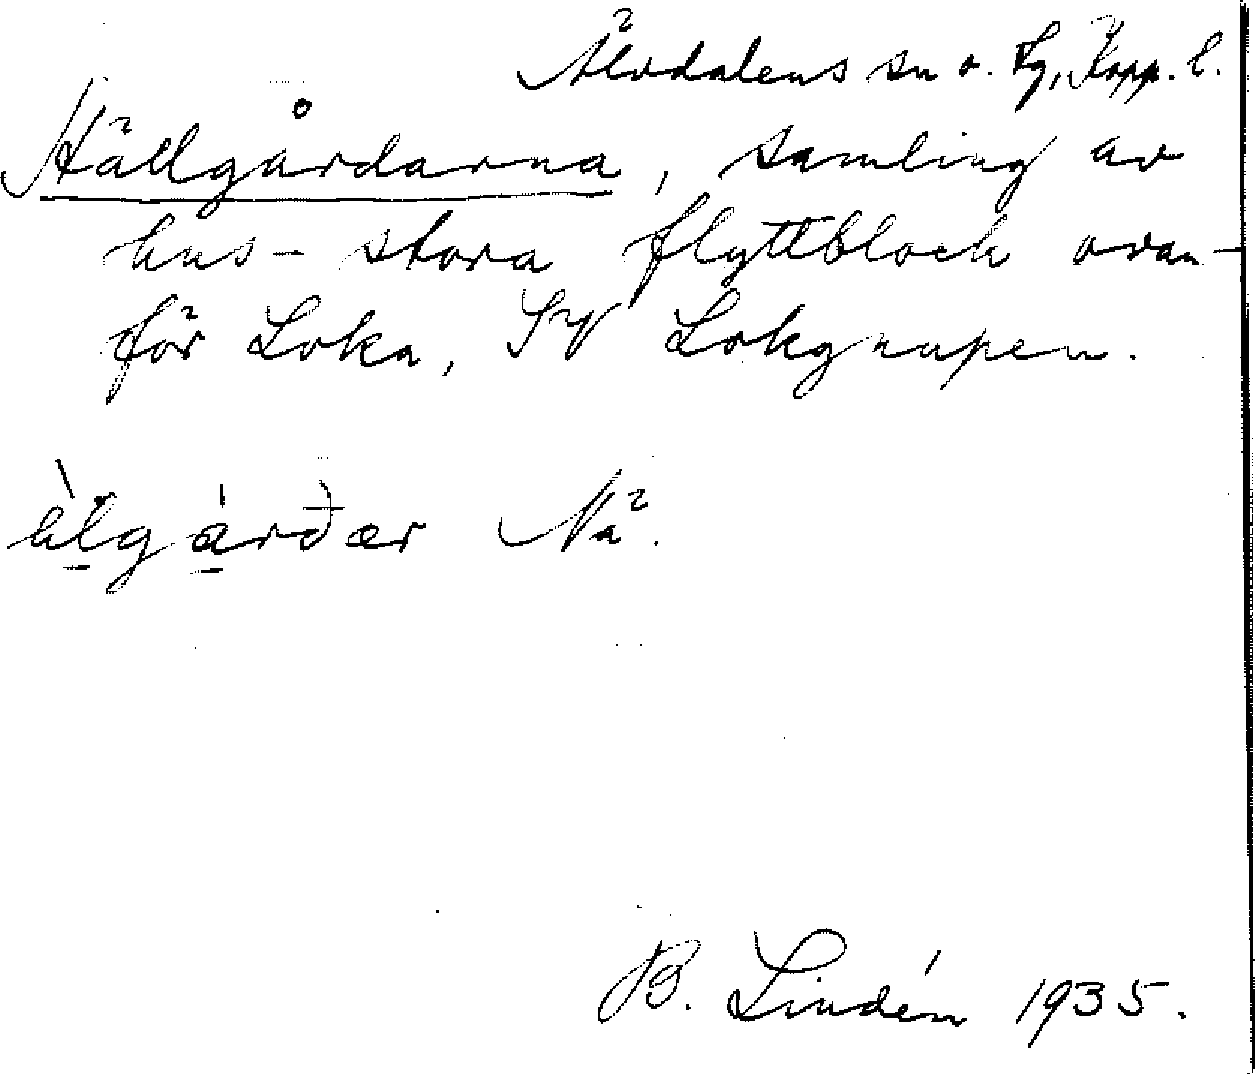 Älvdalens sn o. tg, Kopp. l.
Hällgårdarna, samling av
hus-stora flyttblock ovan-
för Loka, SV Lokgnupen.
Nä.
B. Lindén 1935.